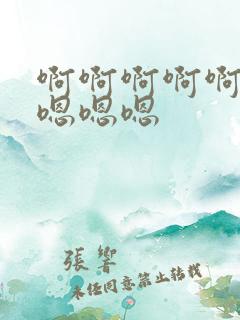 啊啊啊啊啊
嗯嗯嗯
張響
未经同意禁止转载